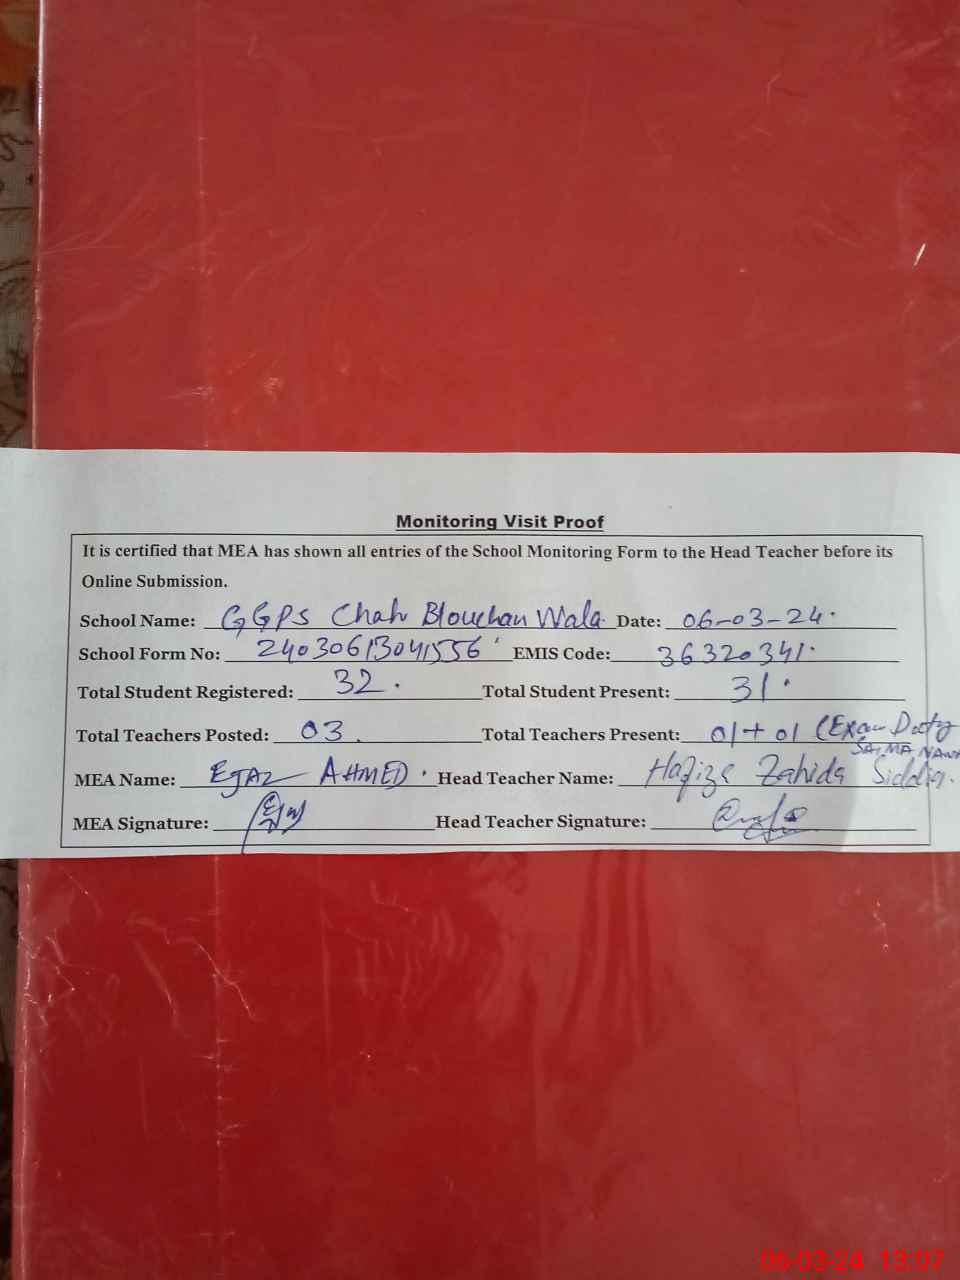 Monitoring Visit Proof
It is certified that MEA has shown all entries of the School Monitoring Form to the Head Teacher before its
Online Submission.
School Name: GGPS Chah Blouchan Wala. Date: 06-03-24.
School Form No: 24030613041556 EMIS Code: 36320341.
Total Student Registered: 32. Total Student Present: 31.
Total Teachers Posted: 03. Total Teachers Present: 01+01 (Exam Duty
SAIMA NAWA
MEA Name: EJAZ AHMED. Head Teacher Name: Hafiza Zahida Siddiq.
MEA Signature: Head Teacher Signature:
06-03-24 13:07